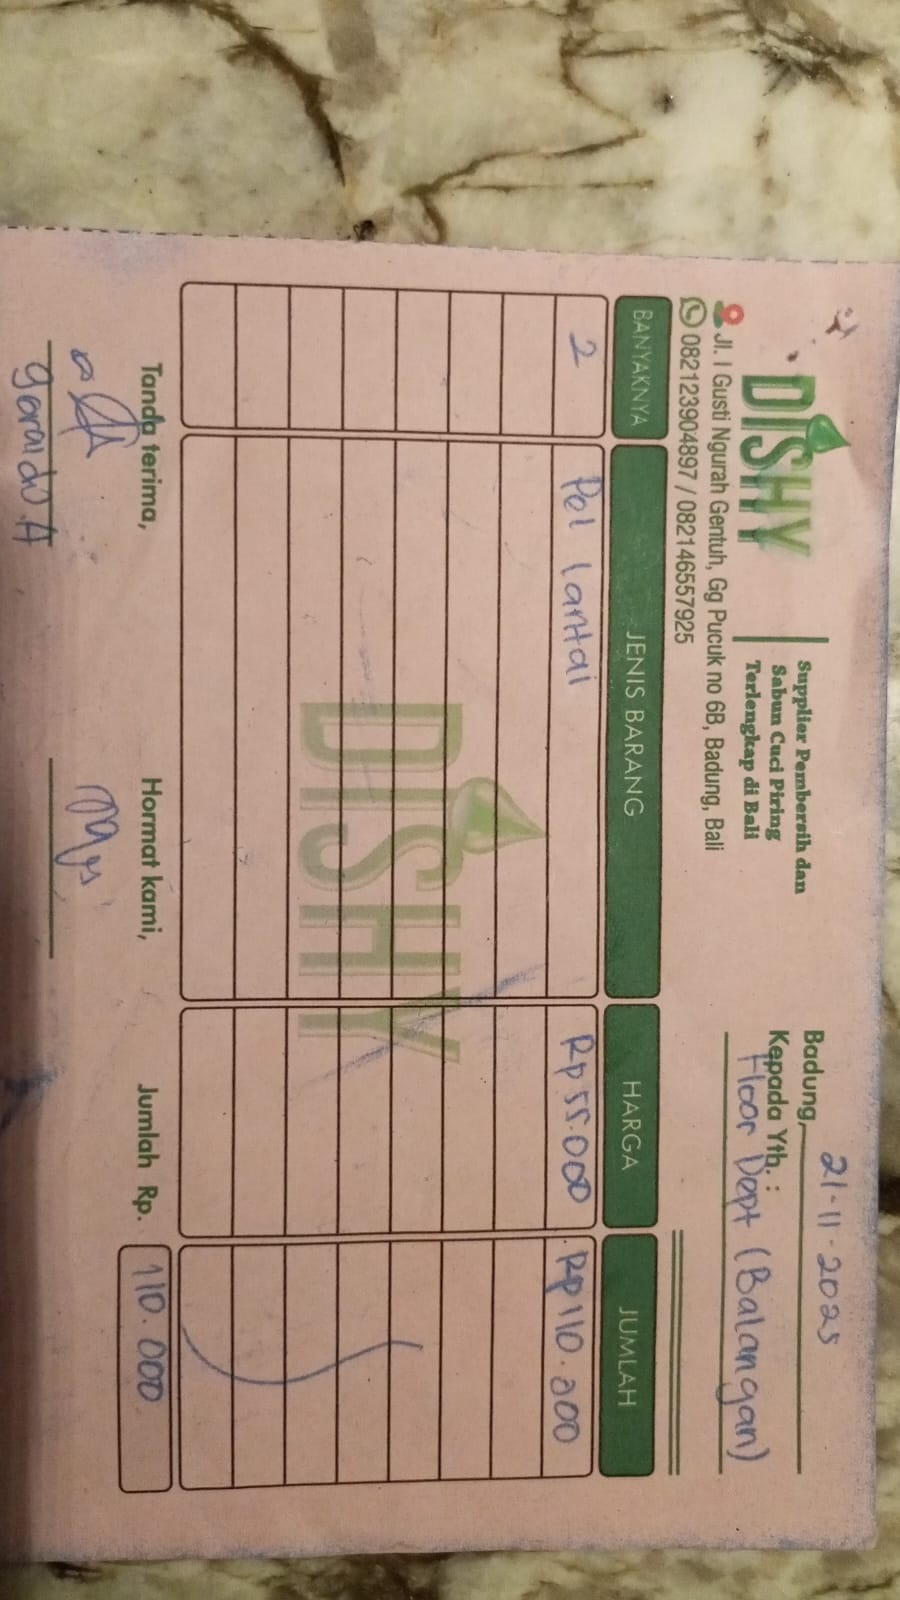 DISHY
Supplier Pembersih dan
Sabun Cuci Piring
Terlengkap di Bali
Jl. I Gusti Ngurah Gentuh, Gg Pucuk no 6B, Badung, Bali
082123904897 / 082146557925
Badung, 21-11-2025
Kepada Yth. :
Floor Dept (Balangan)
BANYAKNYA JENIS BARANG HARGA JUMLAH
2 Pel lantai Rp 55.000 Rp 110.000
DISHY
Tanda terima, Hormat kami, Jumlah Rp. 110.000